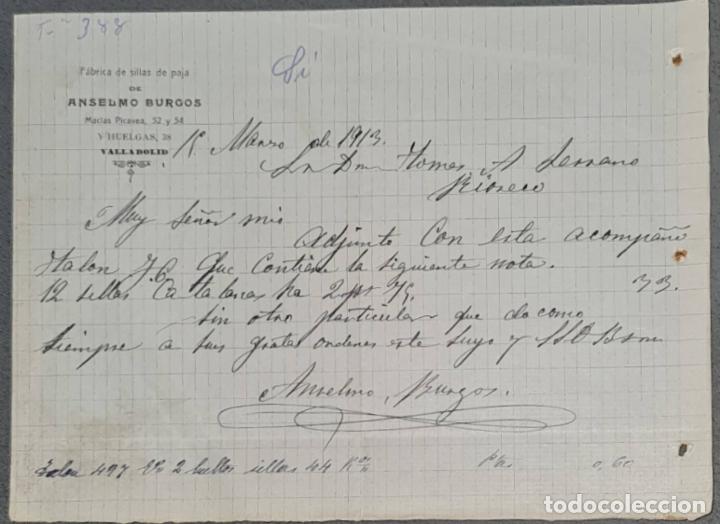 388
Si
Fábrica de sillas de paja
DE
ANSELMO BURGOS
Macias Picavea, 52 y 54
Y HUELGAS, 38
VALLADOLID
Marzo de 1913.
Sr Dn Tomas A Serrano
Rioseco
Muy Señor mio
adjunto Con esta acompaño
talon que Contiene la siguiente nota.
12 sillas Catalanas ha 2 33.
sin otro particular que da como
siempre a sus gratas ordenes este suyo y
Anselmo Burgos.
talon 497 En 2 bultos sillas 44 Ks Ptas 0,60
todocoleccion